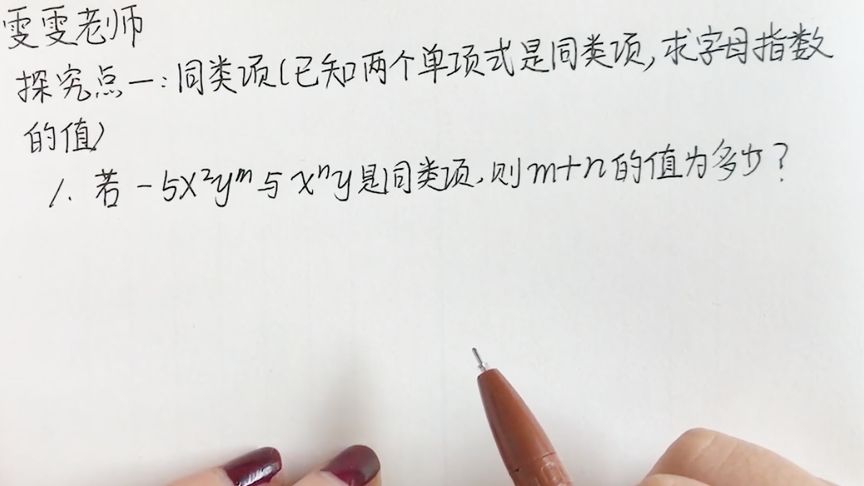 雯雯老师
探究点一:同类项(已知两个单项式是同类项,求字母指数
的值)
1. 若 -5x²yᵐ与 xⁿy是同类项,则m+n的值为多少?